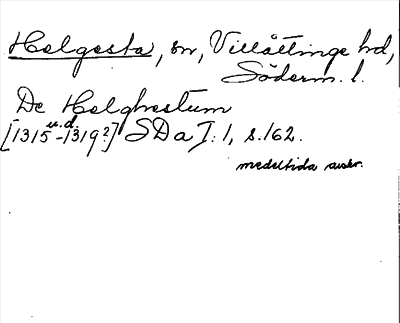 Helgesta, sn, Villåttinge hd,
Söderm. l.
De Helghestum
u.d.
[1315-1319?] SDa I: 1, s. 162.
medeltida avskr.